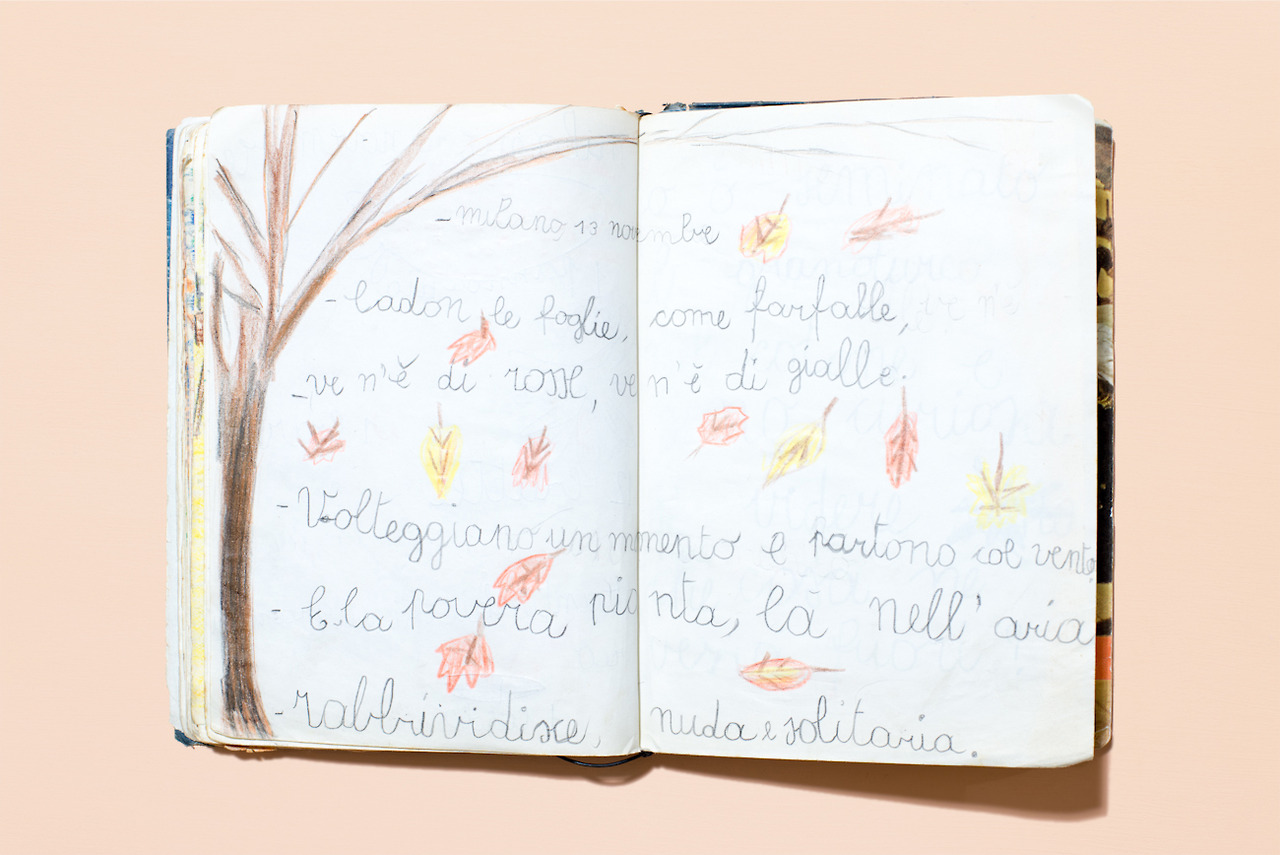 - milano, 13 novembre
- Cadon le foglie, come farfalle,
- ve n'è di rosse, ve n'è di gialle.
- Volteggiano un mmento e partono col vento
- E la povera pianta, là nell'aria
- rabbrividisce, nuda e solitaria.